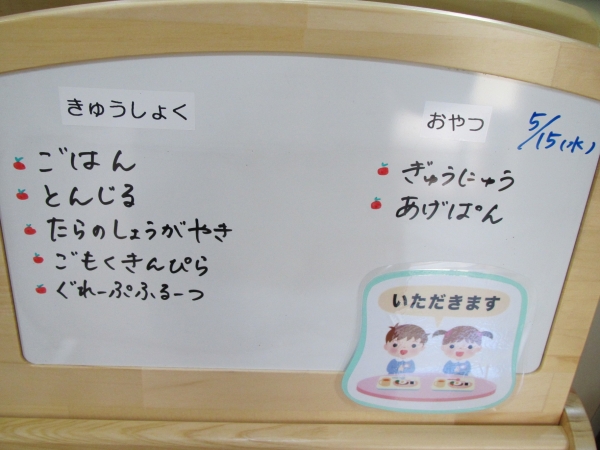 きゅうしょく
ごはん
とんじる
たらのしょうがやき
ごもくきんぴら
ぐれーぷふるーつ
おやつ
5/15(水)
ぎゅうにゅう
あげぱん
いただきます